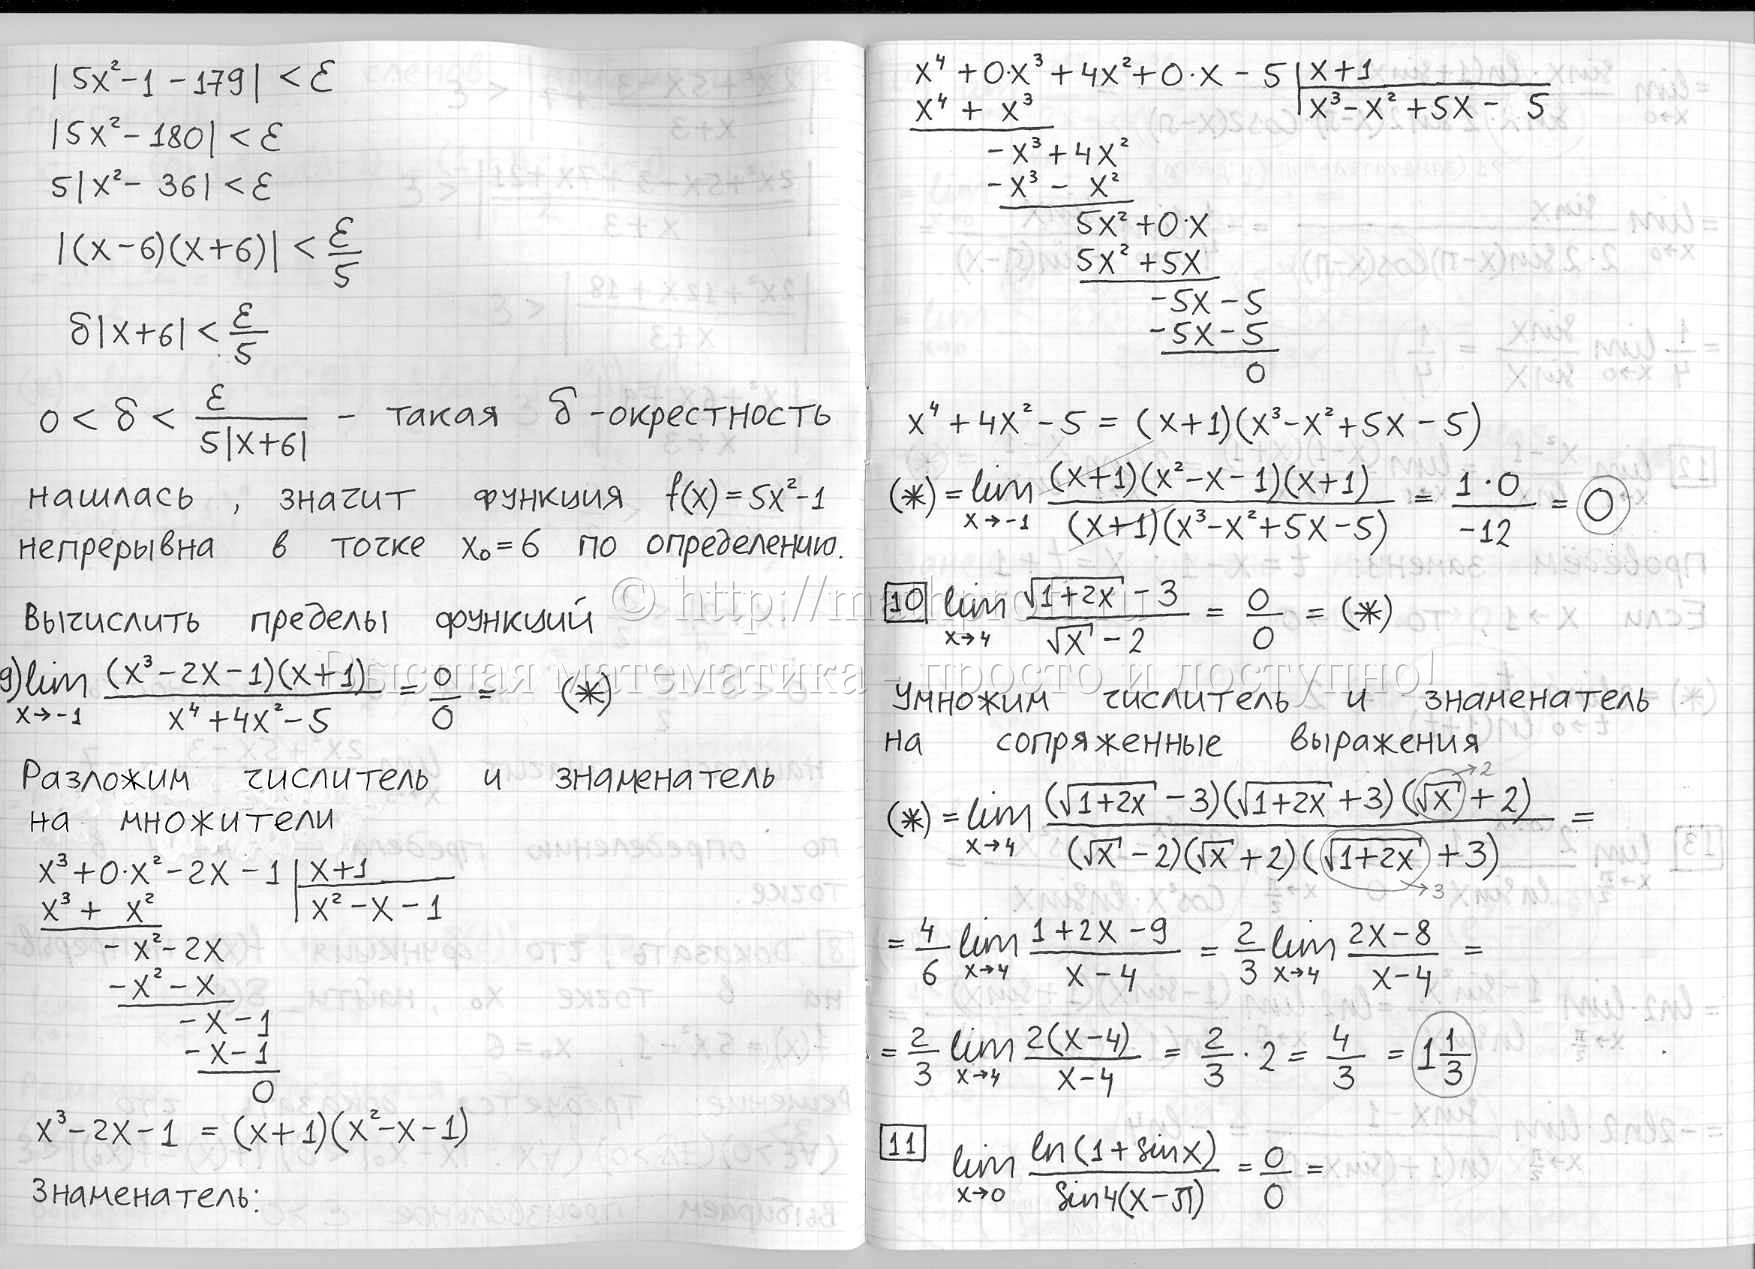 |5x²-1-179| < ε
|5x²-180| < ε
5|x²-36| < ε
|(x-6)(x+6)| < ε/5
δ|x+6| < ε/5
0 < δ < ε/(5|x+6|) - такая δ-окрестность
нашлась, значит функция f(x)=5x²-1
непрерывна в точке x₀=6 по определению.
Вычислить пределы функций
9) lim x→-1 (x³-2x-1)(x+1)/(x⁴+4x²-5) = 0/0 = (*)
Разложим числитель и знаменатель
на множители
x³+0·x²-2x-1 | x+1
x³+x² | x²-x-1
-x²-2x
-x²-x
-x-1
-x-1
0
x³-2x-1 = (x+1)(x²-x-1)
Знаменатель:
x⁴+0·x³+4x²+0·x-5 | x+1
x⁴+x³ | x³-x²+5x-5
-x³+4x²
-x³-x²
5x²+0·x
5x²+5x
-5x-5
-5x-5
0
x⁴+4x²-5 = (x+1)(x³-x²+5x-5)
(*) = lim x→-1 (x+1)(x²-x-1)(x+1)/((x+1)(x³-x²+5x-5)) = 1·0/-12 = 0
© http://mathprofi.ru
10 lim x→4 (√(1+2x)-3)/(√x-2) = 0/0 = (*)
Высшая математека - просто и доступно!
Умножим числитель и знаменатель
на сопряженные выражения
(*) = lim x→4 (√(1+2x)-3)(√(1+2x)+3)(√x+2)/((√x-2)(√x+2)(√(1+2x)+3)) =
→2
→3
= 4/6 lim x→4 (1+2x-9)/(x-4) = 2/3 lim x→4 (2x-8)/(x-4) =
= 2/3 lim x→4 2(x-4)/(x-4) = 2/3·2 = 4/3 = 1 1/3
11 lim x→0 ln(1+sinx)/sin4(x-π) = 0/0 =